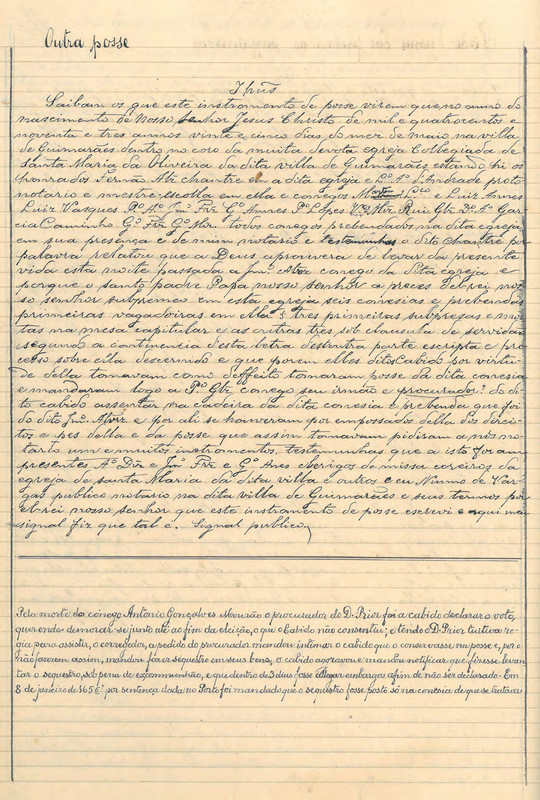 Outra posse
Ihũs
Saibam os que este instromento de posse virem que no anno do
nascimento de nosso senhor Jesus Christo de mil e quatrocentos e
noventa e tres annos vinte e cinco dias do mez de maio na villa
de Guimarães dentro no coro da muita devota egreja Collegiada de
Santa Maria da Oliveira da dita villa de Guimarães estando hi os
honrados Fernão Alz chantre em a dita egreja e d'Andrade proto
notario e mestre escolla em ella e conegos Luiz Annes
Luiz Vasques P.º A.º Jm.º Frz G.º Annes P.º Lopes Rui Glz Gar
cia Caminho G.º Frz G.º Mrz todos conegos prebendados na dita egreja
em sua presença e de mim notario e testemunhas o dito chantre por
palavra relatou que a Deus aprouvera de levar da presente
vida esta noite passada a Jm.º Alvz conego da dita egreja e
porque o santo padre Papa nosso senhor a preces del-rei nos
so senhor subpremeo em esta egreja seis conesias e prebendas
primeiras vagadoiras em ella 3 tres primeiras subpresas e mor
tas na mesa capitular e as outras tres sob clausula de servidam
segundo a continencia desta letra desoutra parte escripta e pro
cesso sobre ella descernido e que porem elles dito Cabido por virtu-
de della tomavam como d'effeito tomaram posse da dita conesia
e mandaram logo a P.º Glz conego seu irmão e procurador? do di
to cabido assentar na cadeira da dita conesia e prebenda que foi
do dito Jm.º Alvrz e por ali se houveram por empossados della dos direi
tos e pes della e da posse que assim tomavam pidiram a mim no
tario um e muitos instromentos. testemunhas que a isto foram
presentes A.º Diz e Jm.º Frz e G.º Anes clerigos de missa coreiros da
egreja de santa Maria da dita villa e outros e eu Nunno de Var
gas publico notario na dita villa de Guimarães e seus termos por
el-rei nosso senhor que este instromento de posse escrevi e aqui meu
signal fiz que tal é. Signal publico
Pela morte do cónego Antonio Gonçalves Mourão o procurador do D. Prior foi a cabido declarar o voto,
querendo demorar-se junto até ao fim da eleição, o que o Cabido não consentiu; e tendo o D. Prior tuitiva re-
gia para assistir, o corregedor, a pedido do procurador mandou intimar o cabido que o conservasse na posse e, por o
não fazerem assim, mandou fazer sequestro em seus bens, o cabido aggravou e mandou notificar que fizesse levan
tar o sequestro, sob pena de excommunhão, e que dentro de 3 dias fosse allegar embargos afim de não ser declarado. Em
8 de janeiro de 1656 por sentença dada no Porto foi mandado que o sequestro fosse posto só na conesia de que se tratava